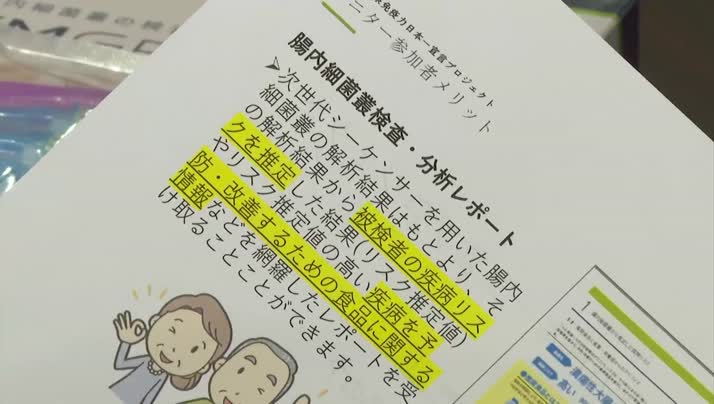 内細菌叢の検
免疫力日本一宣言プロジェクト
ニター参加者メリット
腸内細菌叢検査・分析レポート
➤次世代シーケンサーを用いた腸内
細菌叢の解析結果はもとより、そ
の解析結果から被検者の疾病リス
クを推定した結果(リスク推定値)
やリスク推定値の高い疾病を予
防・改善するための食品に関する
情報などを網羅したレポートを受
け取ることことができます。
1
高い